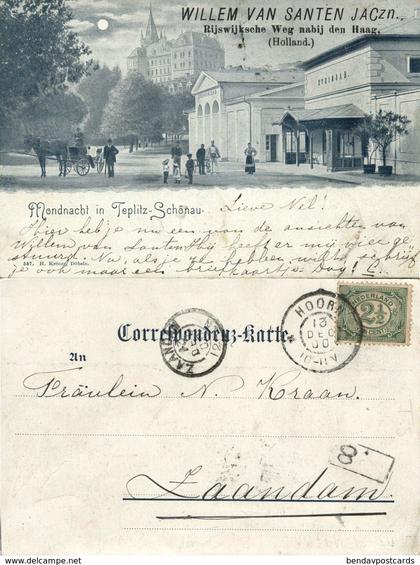 WILLEM VAN SANTEN JACzn.,
Rijswijksche Weg nabij den Haag,
(Holland.)
STEINBAD.
Mondnacht in Teplitz-Schönau.
Lieve Nel!
Hier heb je nu een van de ansichten van
Willem van Santen. Hij heeft er mij vier ge-
stuurd. Nu, als je ze hebben wilt, schrijf
je ook maar een briefkaartje. Dag!
557. H. Krüner, Döbeln.
Correspondenz-Karte.
An
HOORN
13
DEC
00
10-11V
NEDERLAND
2½
CENT
ZAANDAM
13
DEC
00
Fräulein N. Kraan.
8
Zaandam.
www.delcampe.net
bendavpostcards